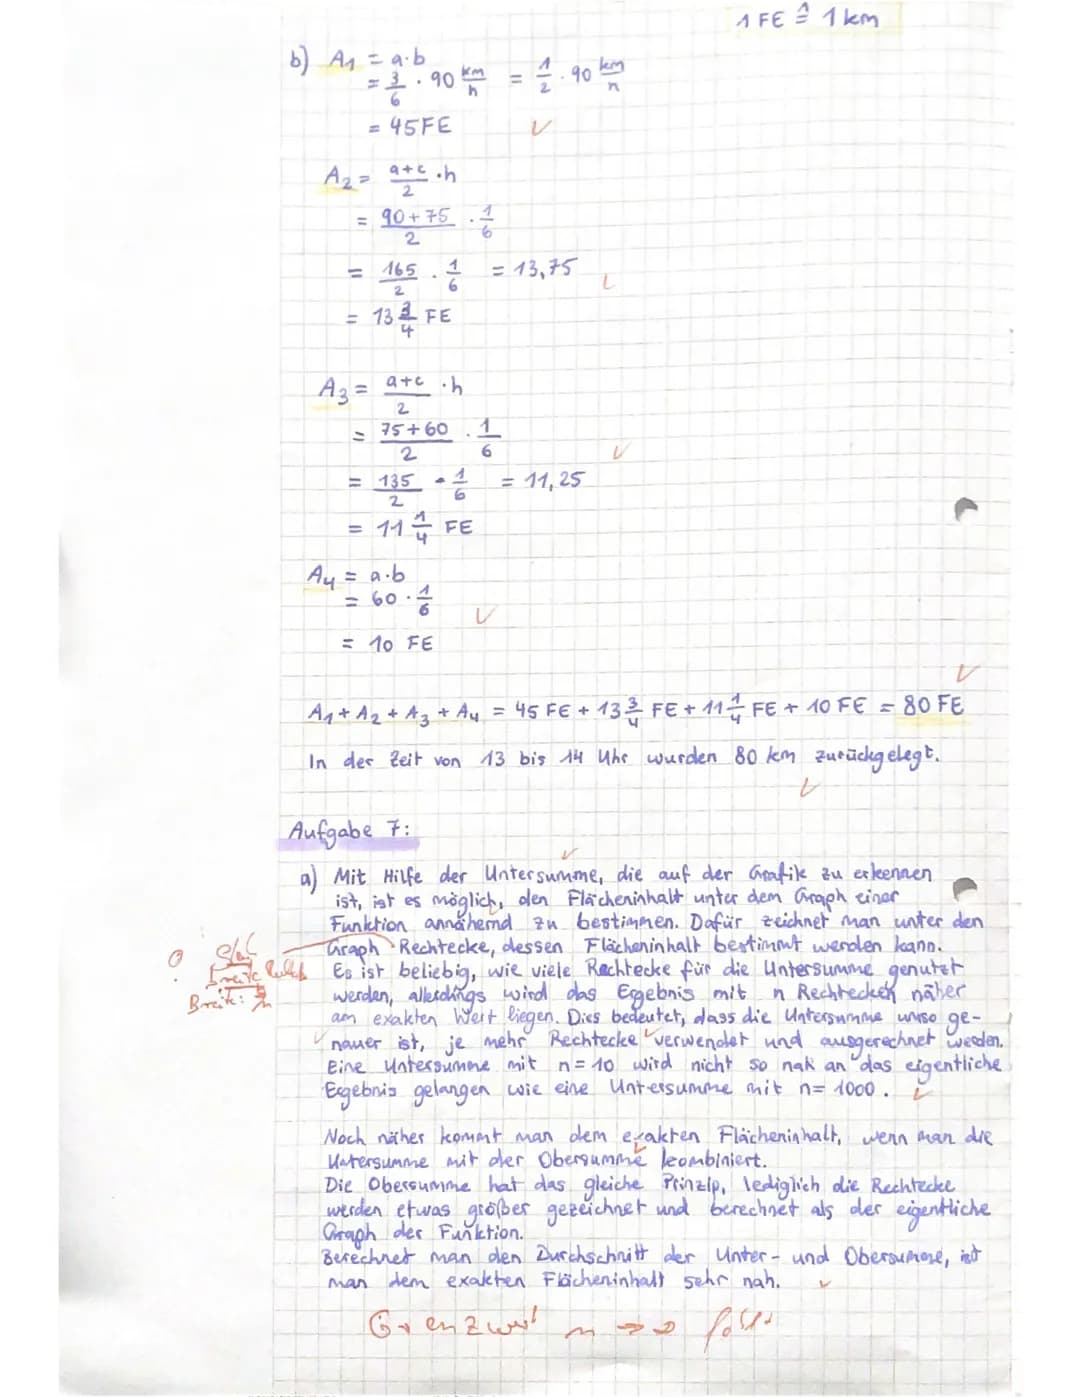 1 FE ≙ 1 km
b) A₁ = a·b
= 3/6 · 90 km/h = 1/2 · 90 km/h
= 45 FE
A₂ = (a+c)/2 · h
= (90+75)/2 · 1/6
= 165/2 · 1/6 = 13,75
= 13 3/4 FE
A₃ = (a+c)/2 · h
= (75+60)/2 · 1/6
= 135/2 · 1/6 = 11,25
= 11 1/4 FE
A₄ = a·b
= 60 · 1/6
= 10 FE
A₁ + A₂ + A₃ + A₄ = 45 FE + 13 3/4 FE + 11 1/4 FE + 10 FE = 80 FE
In der Zeit von 13 bis 14 Uhr wurden 80 km zurückgelegt.
Aufgabe 7:
a) Mit Hilfe der Untersumme, die auf der Grafik zu erkennen
ist, ist es möglich, den Flächeninhalt unter dem Graph einer
Funktion annähernd zu bestimmen. Dafür zeichnet man unter den
Graph Rechtecke, dessen Flächeninhalt bestimmt werden kann.
Es ist beliebig, wie viele Rechtecke für die Untersumme genutzt
werden, allerdings wird das Ergebnis mit n Rechtecken näher
Breite:
am exakten Wert liegen. Dies bedeutet, dass die Untersumme umso ge-
nauer ist, je mehr Rechtecke verwendet und ausgerechnet werden.
Eine Untersumme mit n = 10 wird nicht so nah an das eigentliche
Ergebnis gelangen wie eine Untersumme mit n = 1000.
Noch näher kommt man dem exakten Flächeninhalt, wenn man die
Untersumme mit der Obersumme kombiniert.
Die Obersumme hat das gleiche Prinzip, lediglich die Rechtecke
werden etwas größer gezeichnet und berechnet als der eigentliche
Graph der Funktion.
Berechnet man den Durchschnitt der Unter- und Obersumme, ist
man dem exakten Flächeninhalt sehr nah.
Grenzwert n → ∞ fehlt